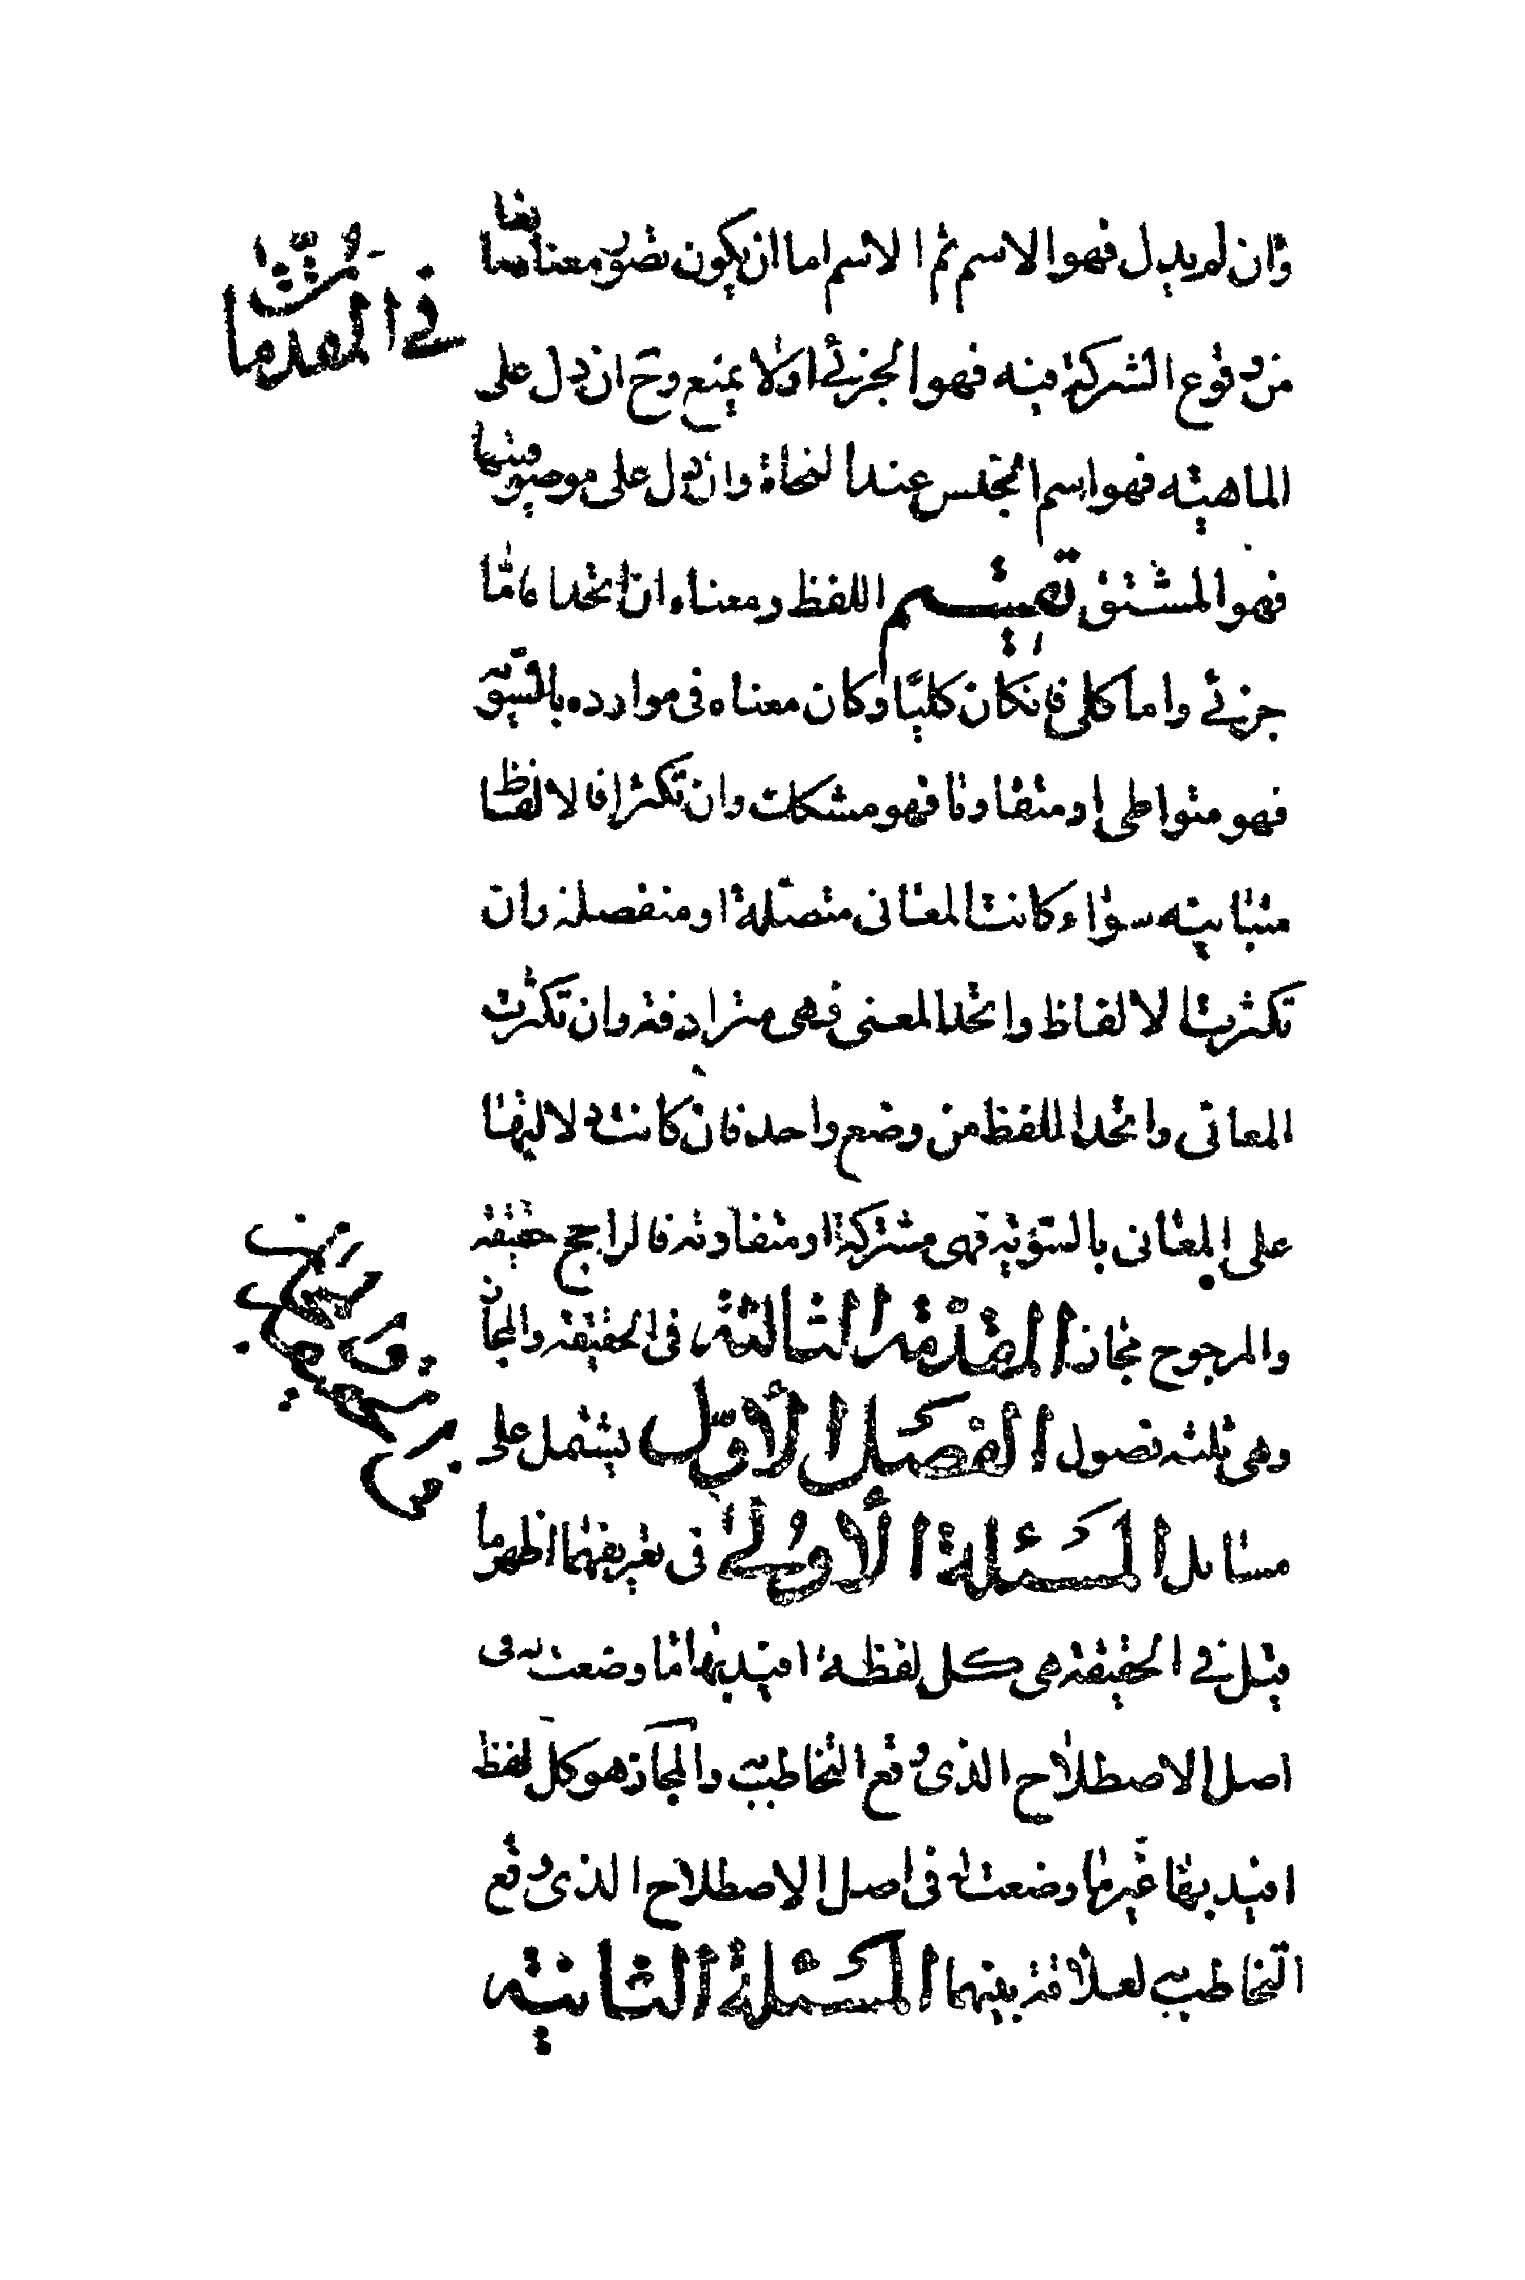 وان لم يدل فهو الاسم ثم الاسم اما ان يكون تصور معناه مانعا
من وقوع الشركة فيه فهو الجزئے اولا يمنع وح ان دل على
الماهيته فهو اسم الجنس عند النحاة وان دل على موصوفيتها
فهو المشتق تقسيم اللفظ ومعناه ان اتحدا فامّا
جزئے واما كلى فانكان كليًا وكان معناه فى موارده بالسّويّة
فهو متواطى او متفاوتا فهو مشكك وان تكثرا فالالفاظ
متباينه سواء كانت المعانى متصّلة او منفصلة وان
تكثرت الالفاظ واتحد المعنى فهى مترادفة وان تكثرت
المعانى واتحد اللفظ من وضع واحد فان كانت دلالتها
على المعانى بالسّويّه فهى مشتركة او متفاوته فالراجح حقيقه
والمرجوح مجاز المقدّمة الثالثة فى الحقيقة والمجاز
وهى ثلثه فصول الفصل الأوّل يشتمل على
مسائل المسئلة الأولےٰ فى تعريفهما اظهر ما
قيل فے الحقيقة هى كل لفظة افيد بها ما وضعت له فى
اصل الاصطلاح الذى وقع التخاطب به والمجاز هو كل لفظ
افيد بها غير ما وضعت له فى اصل الاصطلاح الذى وقع
التخاطب به لعلاقة بينهما المسئلة الثانيه
فے المقدمات